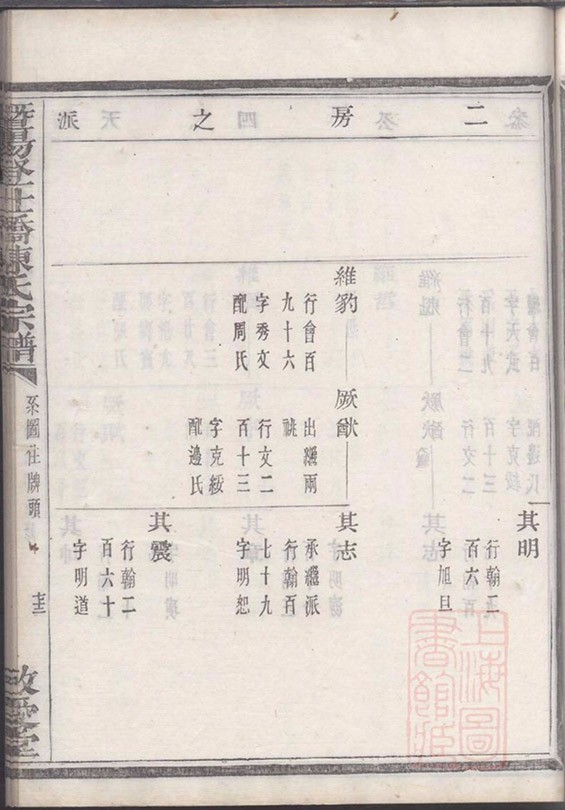 二房之派
其明
行翰二
百六
字旭旦
維豹
行會百
九十六
字秀文
配周氏
厥猷
出繼兩
祧
行文二
百十三
字克綏
配邊氏
其志
承繼派
行翰百
七十九
字明恕
其震
行翰二
百六十
字明道
暨陽
橋陳氏宗譜
系圖
牌頭
敬愛堂
上海圖
書館藏